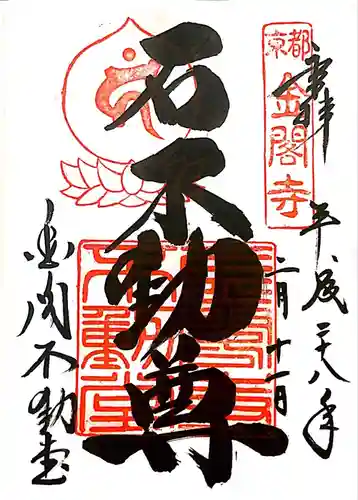 奉拝
京都
金閣寺
平成二十八年
二月十一日
石不動尊
金閣不動堂